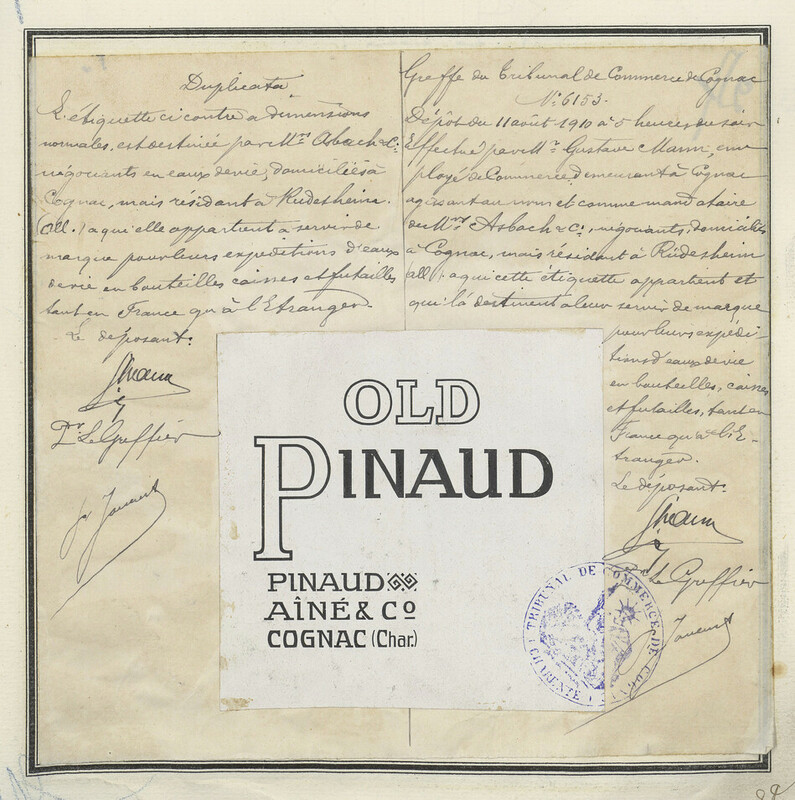 Duplicata
L'étiquette ci contre a dimensions
normales, est destinée par Mrs Asbach & Cie
négociants en eaux de vie, domiciliés à
Cognac, mais résidant à Rudesheim
(All.) a qui elle appartient a servir de
marque pour leurs expéditions d'eaux
de vie en bouteilles caisses et futailles
tant en France qu'à l'Etranger.
Le déposant:
GMann
Pr Le Greffier
Greffe du Tribunal de Commerce de Cognac
No 6153.
Dépôt du 11 août 1910 à 5 heures du soir
Effectué par Mr Gustave Mann, em
ployé de Commerce demeurant à Cognac
agissant au nom et comme mandataire
de Mrs Asbach & Cie, négociants, domiciliés
à Cognac, mais résidant à Rüdesheim
all. a qui cette étiquette appartient et
qui la destinent a leur servir de marque
pour leurs expédi-
tions d'eaux de vie
en bouteilles, caisses
et futailles, tant en
France qu'à l'E-
tranger.
Le déposant:
GMann
Pr Le Greffier
OLD
PINAUD
PINAUD
AÎNÉ & Co
COGNAC (Char.)
TRIBUNAL DE COMMERCE DE COGNAC
CHARENTE